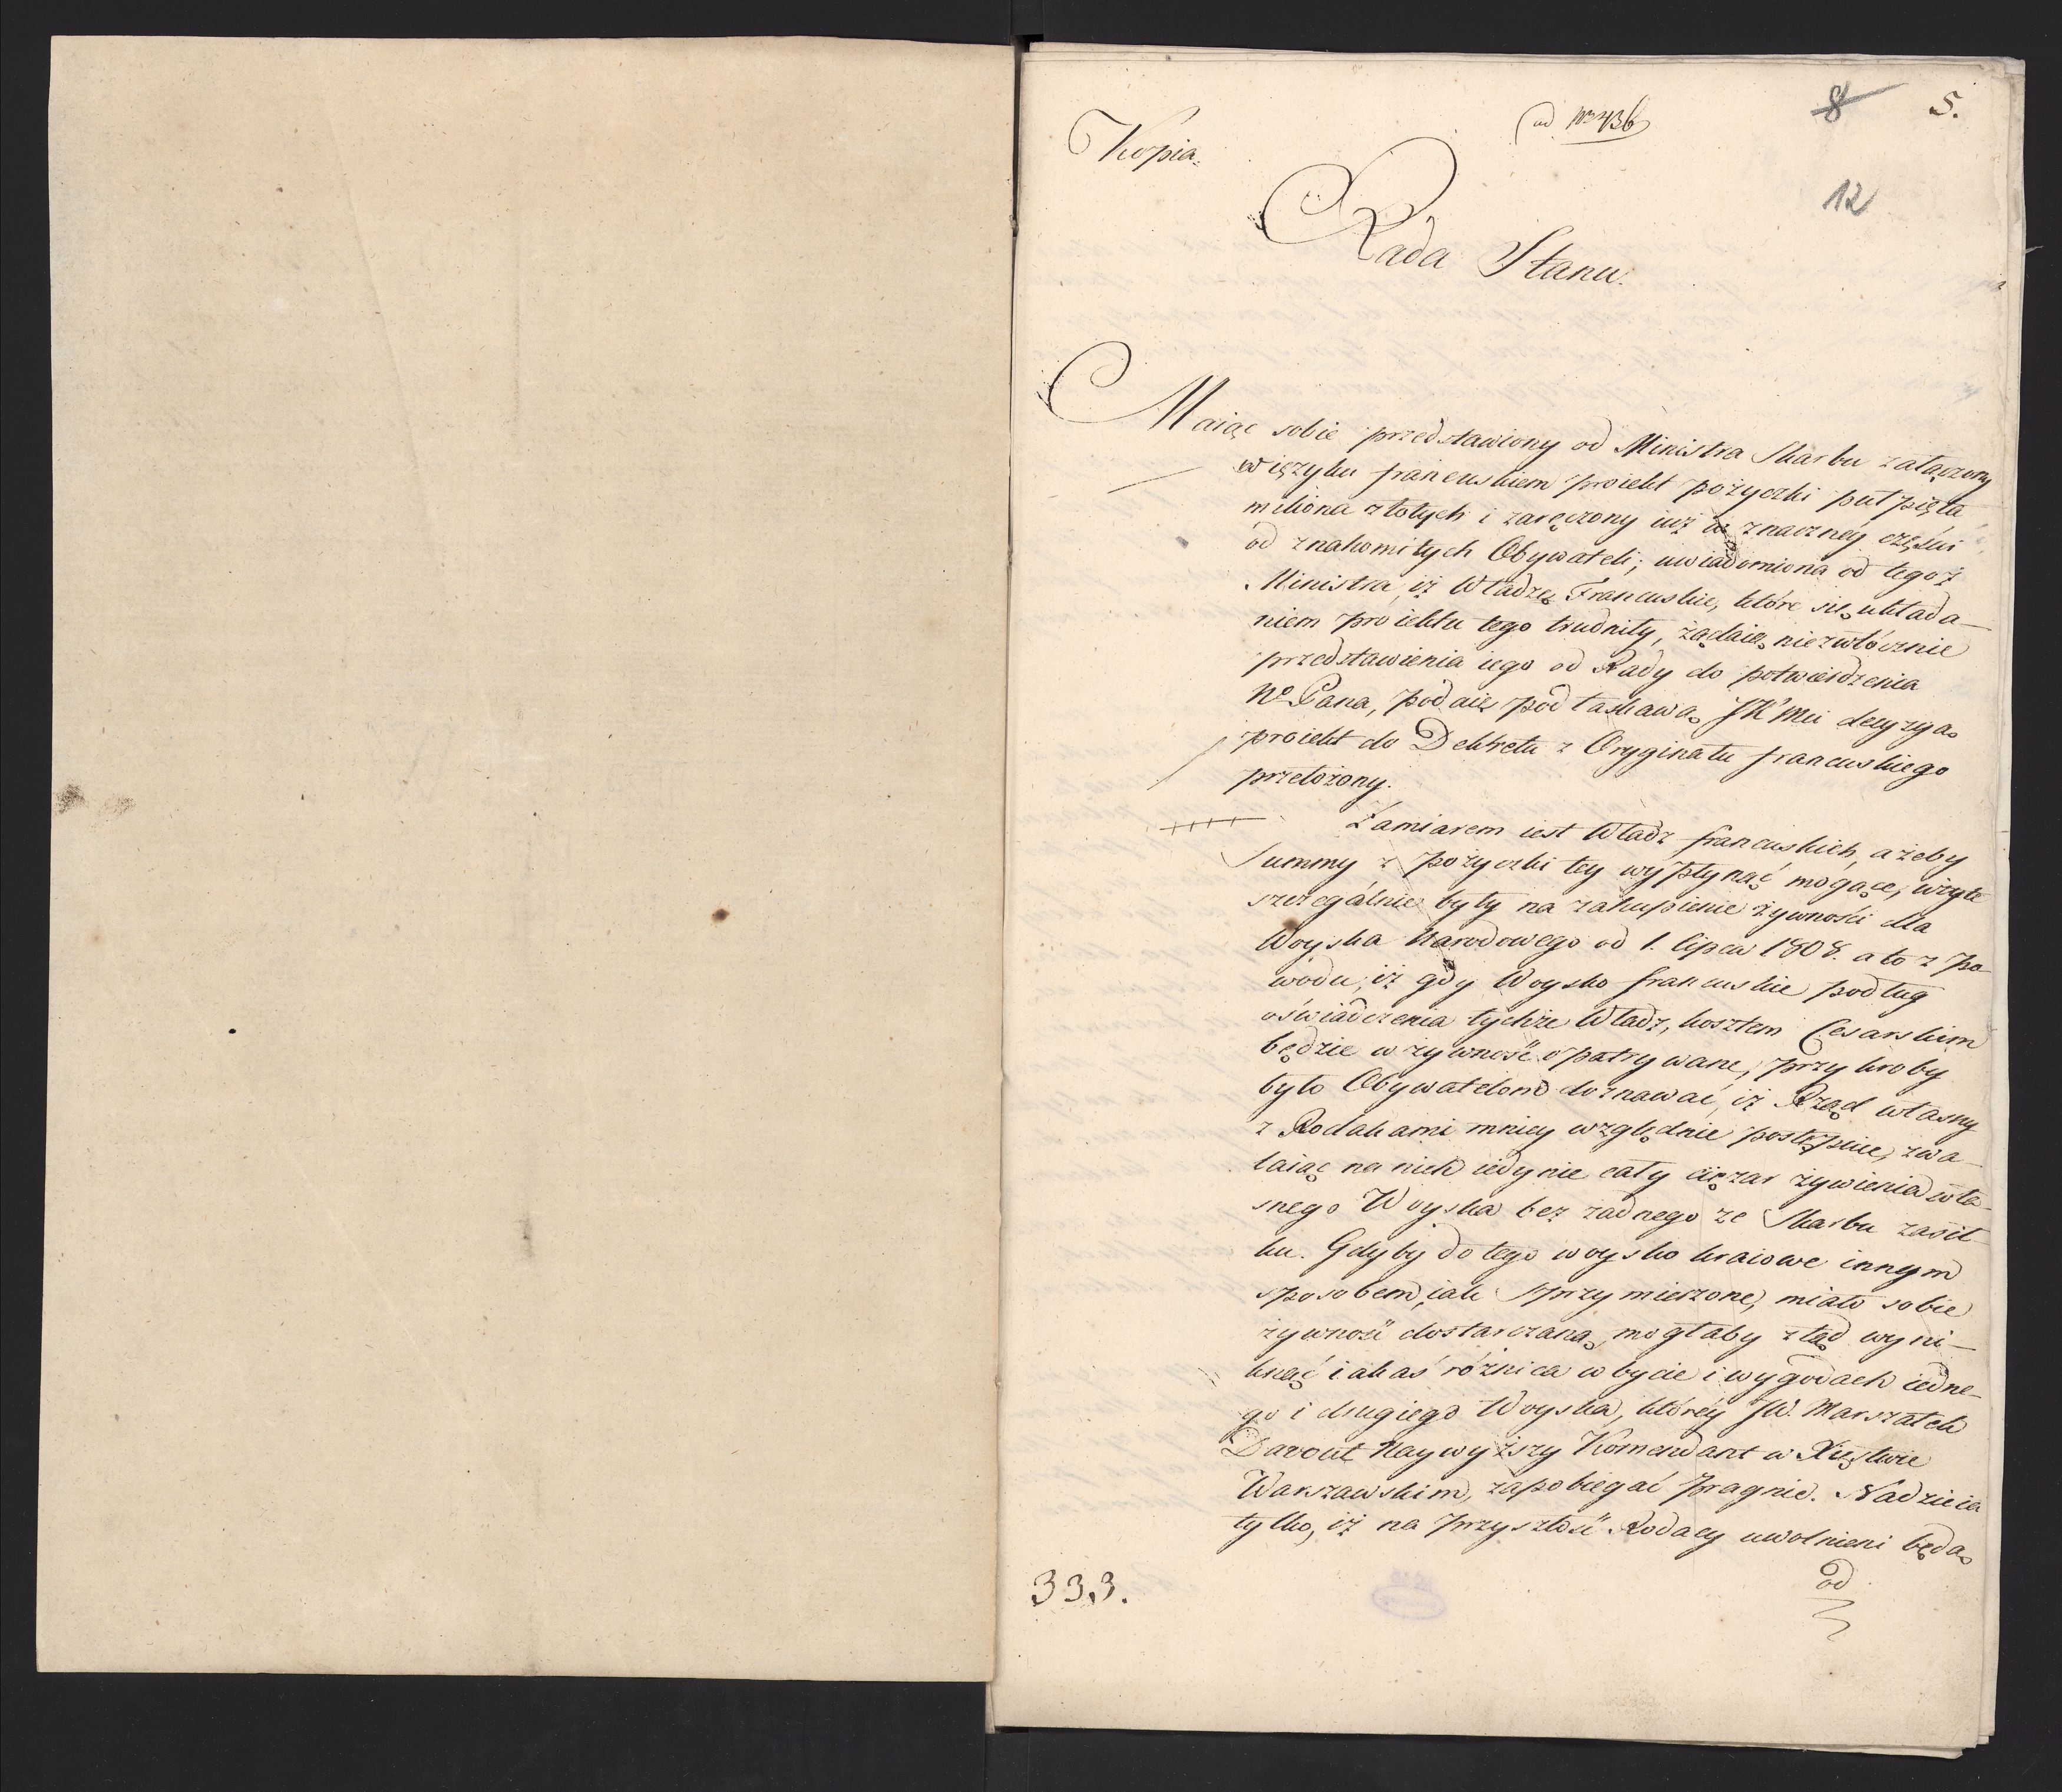 Kopia.
ad No 436
8 5.
12
Rada Stanu.
Maiąc sobie przedstawiony od Ministra Skarbu załączony
w ięzyku francuskiem proiekt pożyczki puł pięta
miliona złotych i zaręczony iuż w znaczney części
od znakomitych Obywateli; uwiadomiona od tegoż
Ministra, iż Władze Francuskie, które się układa-
niem proiektu tego trudniły, żądaią niezwłócznie
przedstawienia iego od Rady do potwierdzenia
No Pana, podaię pod łaskawą JKMci decyzyą
proiekt do Dekretu z Oryginału francuskiego
przełożony.
Zamiarem iest Władz francuskich, ażeby
Summy z pożyczki tey wypłynąć mogące, użyte
szczegálnie były na zakupienie żywności dla
Woyska Narodowego od 1. lipca 1808. a to z Po-
wodu, iż gdy Woysko francuskie podług
oświadczenia tychże Władz, kosztem Cesarskim
będzie w żywność opatrywane, przykroby
było Obywatelom doznawać, iż Rząd własny
z Rodakami mniey względnie postępuie, zwa-
laiąc na nich iedynie cały ciężar żywienia wła-
snego Woyska bez żadnego ze Skarbu zasił-
ku. Gdyby do tego woysko kraiowe innym
sposobem, iak sprzymierzone, miało sobie
żywność dostarczaną, mogłaby ztąd wyni-
knąć iakaś różnica w bycie i wygodach iedne-
go i drugiego Woyska, którey JW. Marszałek
Davout Naywyższy Komendant w Xięstwie
Warszawskim, zapobiegać pragnie. Nadzieia
tylko, iż na przyszłość Rodacy uwolnieni będą
od
333.